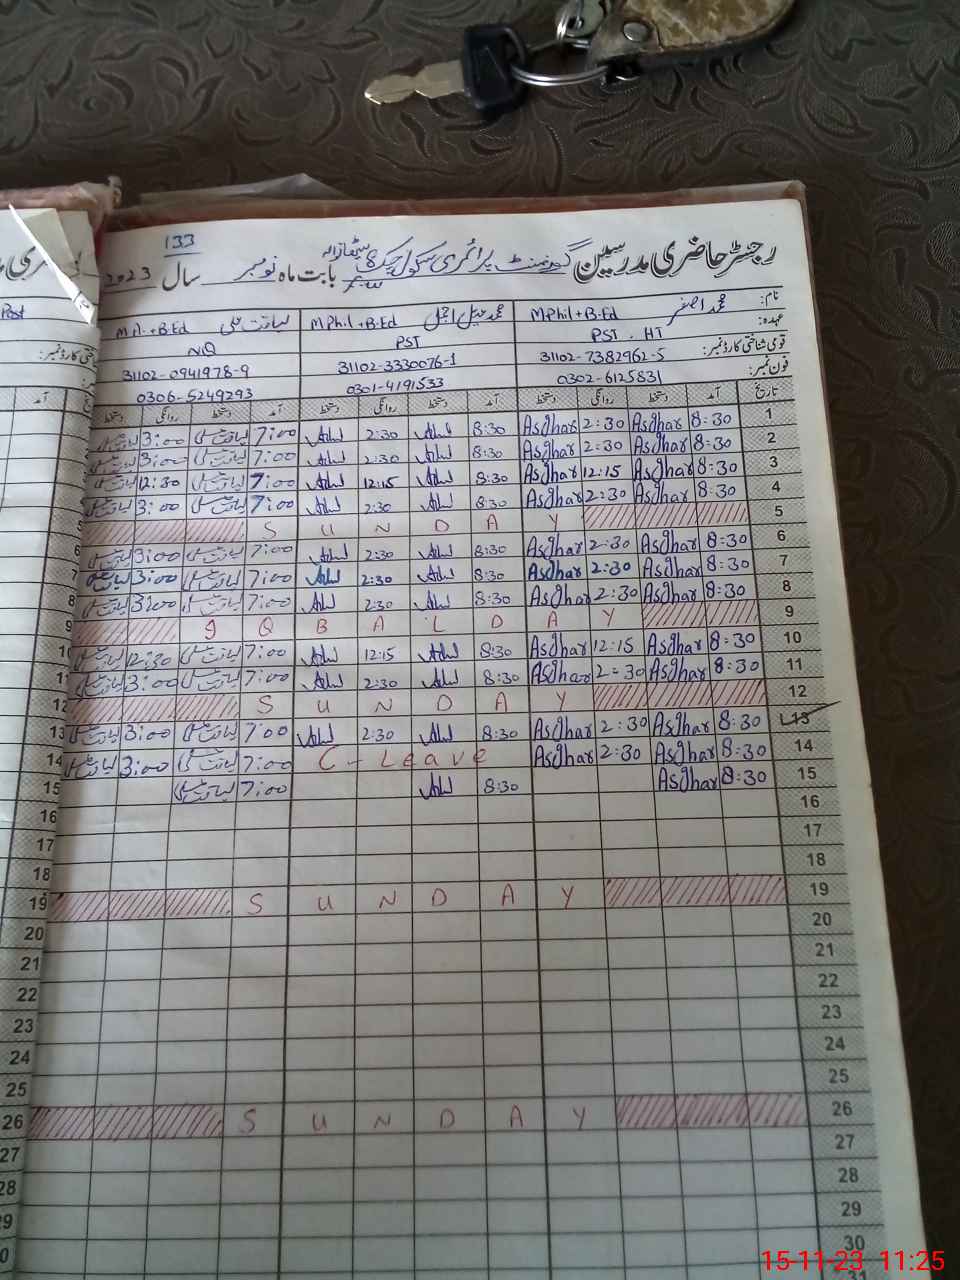 133
رجسٹر حاضری مدرسین گورنمنٹ پرائمری سکول چک بابت ماہ نومبر سال 2023
نام: محمد اصغر MPhil+B.Ed محمد اجمل MPhil+B.Ed لیاقت علی M.A.+B.Ed
عہدہ: PST . HT PST NQ
قومی شناختی کارڈ نمبر: 31102-7382962-5 31102-3330076-1 31102-0941978-9
فون نمبر: 0302-6125831 0301-4191533 0306-5249293
تاریخ آمد دستخط روانگی دستخط آمد دستخط روانگی دستخط آمد دستخط روانگی دستخط
1 8:30 Asghar 2:30 Asghar 8:30 2:30 7:00 لیاقت علی 3:00 لیاقت علی
2 8:30 Asghar 2:30 Asghar 8:30 2:30 7:00 لیاقت علی 3:00 لیاقت علی
3 8:30 Asghar 12:15 Asghar 8:30 12:15 7:00 لیاقت علی 12:30 لیاقت علی
4 8:30 Asghar 2:30 Asghar 8:30 2:30 7:00 لیاقت علی 3:00 لیاقت علی
5 S U N D A Y 5
6 8:30 Asghar 2:30 Asghar 8:30 2:30 7:00 لیاقت علی 3:00 لیاقت علی 6
7 8:30 Asghar 2:30 Asghar 8:30 2:30 7:00 لیاقت علی 3:00 لیاقت علی 7
8 8:30 Asghar 2:30 Asghar 8:30 2:30 7:00 لیاقت علی 3:00 لیاقت علی 8
9 I Q B A L D A Y 9
10 8:30 Asghar 12:15 Asghar 8:30 12:15 7:00 لیاقت علی 12:30 لیاقت علی 10
11 8:30 Asghar 2:30 Asghar 8:30 2:30 7:00 لیاقت علی 3:00 لیاقت علی 11
12 S U N D A Y 12
13 8:30 Asghar 2:30 Asghar 8:30 2:30 7:00 لیاقت علی 3:00 لیاقت علی 13
14 8:30 Asghar 2:30 Asghar C - Leave 7:00 لیاقت علی 3:00 لیاقت علی 14
15 8:30 Asghar 8:30 7:00 لیاقت علی 15
16 16
17 17
18 18
19 S U N D A Y 19
20 20
21 21
22 22
23 23
24 24
25 25
26 S U N D A Y 26
27 27
28 28
29 29
30
31
15-11-23 11:25